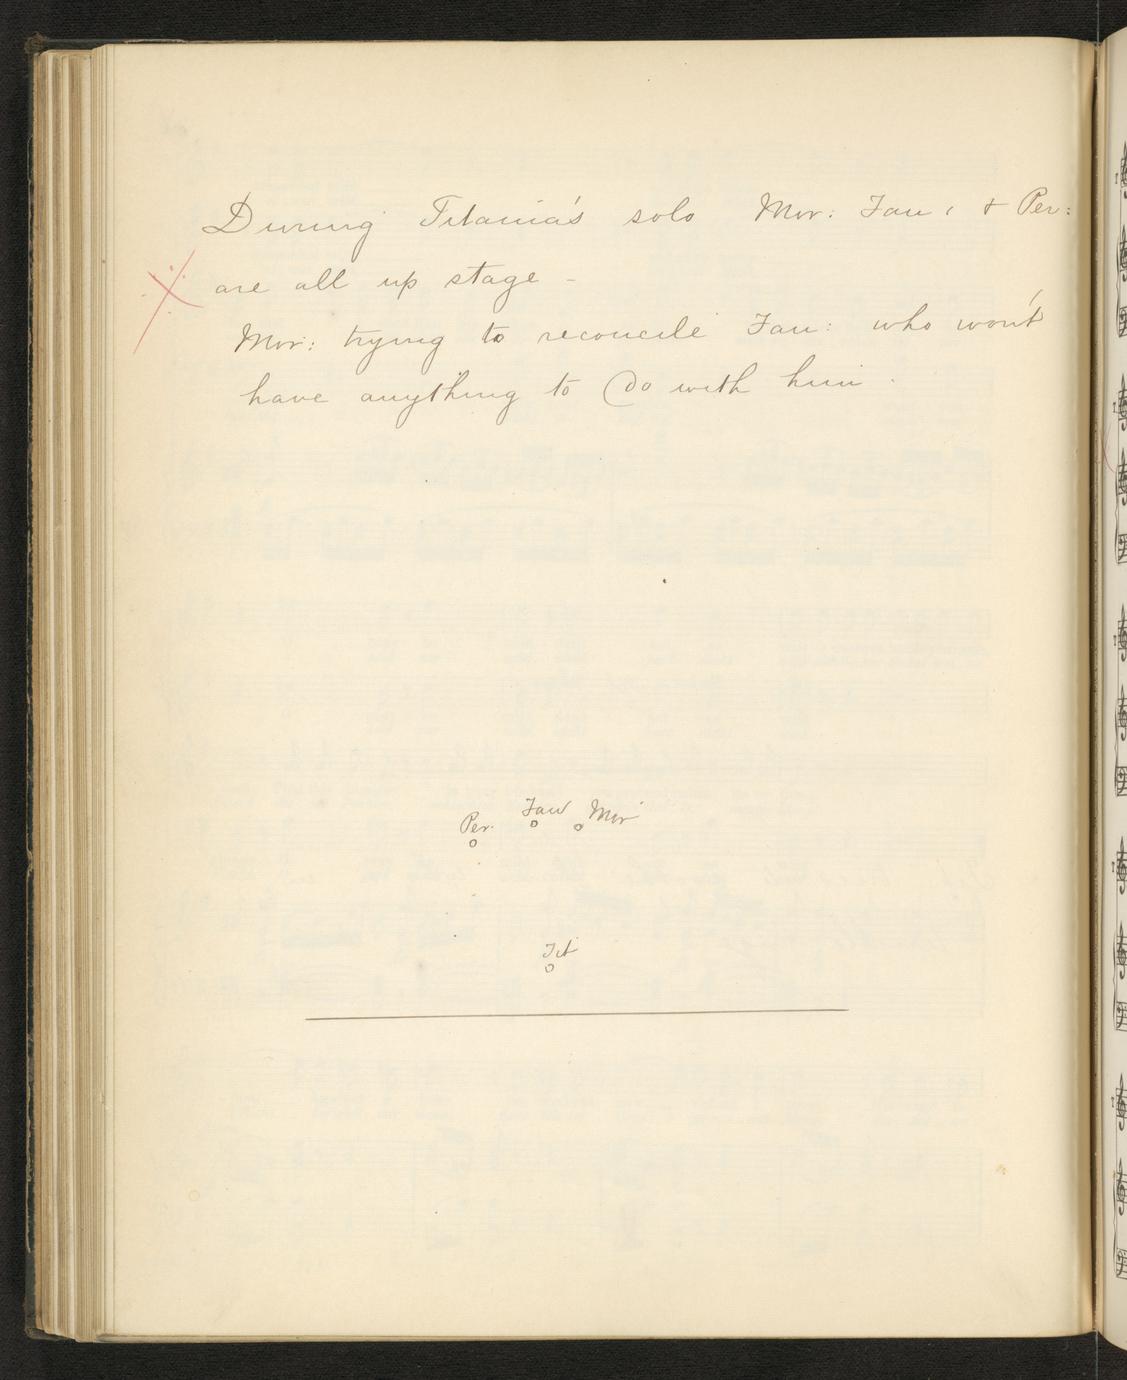 During Titania's solo Mor: Fau, & Per:
are all up stage –
Mor: trying to reconcile Fau: who won't
have anything to do with him.
Per. Fau Mor
Tit